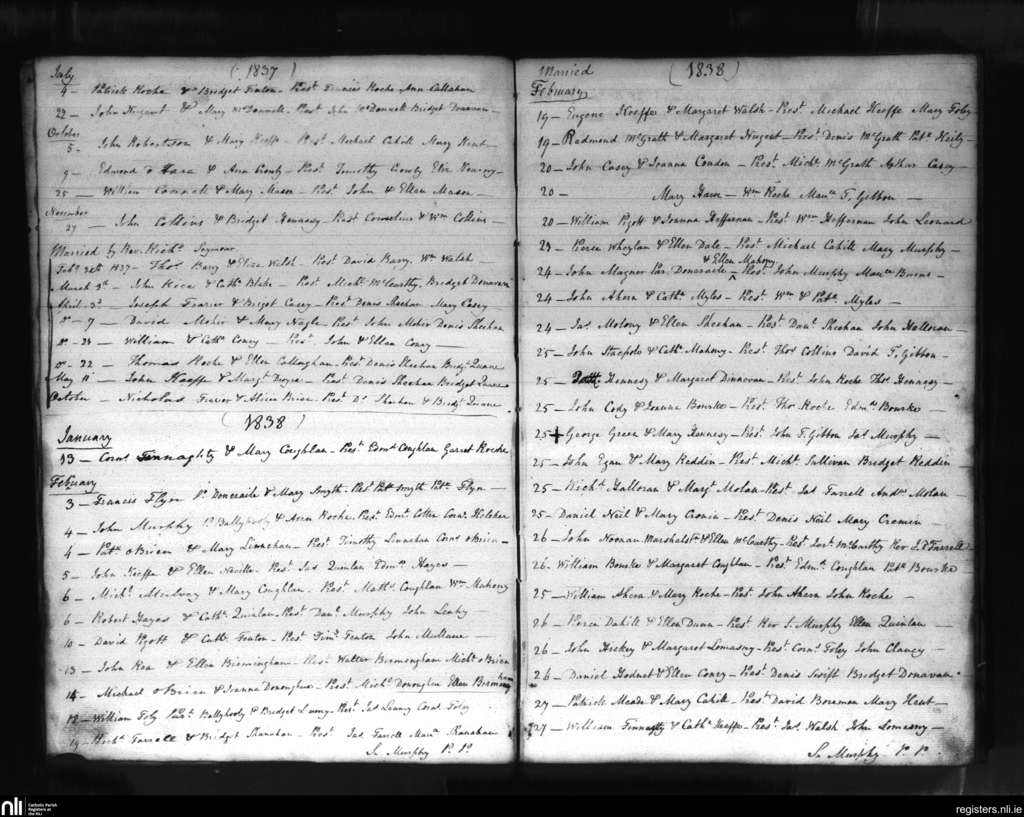 July (1837)
4 - Patrick Roche & Bridget Fenton - Prest Francis Roche Ann Callahan
22 - John Nugent & Mary McDonnell - Prest John McDonnell Bridget Donovan -
October
5 - John Robertson & Mary Keeffe - Prest Michael Cahill Mary Hunt -
9 - Edmond O Hara & Ann Crouly - Prest Timothy Crouly Eliz
25 - William & Mary Mason - Prest John & Ellen Mason -
November
27 - John Collins & Bridget Hennessy - Prest Cornelius & Wm Collins -
Married by Revd Richd Seymour
Feby 1837 - Thos Barry & Eliza Walsh - Prest David Barry. Wm Walsh -
March 3d - John Rice & Cathe Blake - Prest Michl McCarthy, Bridget Donavan
April 3d - Joseph Frazier & Briget Casey - Prest Denis Sheehan Mary Casey
Do - 7 - David Moher & Mary Nagle - Prest John Moher Denis Sheehan
Do - 21 - William & Cathe Coney - Prest John & Ellen Coney -
Do - 22 - Thomas Roche & Ellen Callaghan - Prest Denis Sheehan Bridgt Quane
May 11 - John Keeffe & Margt - Prest Denis Sheehan Bridget Quane
October - Nicholas & Alice Brien - Prest Ds Sheehan & Bridgt Quane
(1838)
January
13 - Corns Finnaghty & Mary Coughlan - Prest Edmd Coughlan Garret Roche
February
3 - Francis Flyn Ph Doneraile & Mary Smyth - Prest Patk Smyth Patk Flyn -
4 - John Murphy Ph Ballyhooly & Ann Roche. Prest Edmd Cotter Corns Kelcher
4 - Patk O Brien & Mary Linnehan - Prest Timothy Linnehan Corns O Brien -
5 - John Keeffe & Ellen Neville - Prest Jas Quinlan Edmd Hayes -
6 - Michl & Mary Coughlan - Prest Matths Coughlan Wm Mahony
6 - Robert Hayes & Cathe Quinlan - Prest Danl Murphy John Leahy -
10 - David Pigott & Cathe Fenton - Prest Dims Fenton John Mullane -
13 - John Rea & Ellen Birmingham - Prest Walter Birmingham Michl O Brien
14 - Michael O Brien & Joanna Donoughue - Prest Michl Donoughue Ellen Birmingham
18 - William Foly Parst Ballyhooly & Bridget Luney - Prest Jas Luney Corns Foley
19 - Richd Farrell & Bridget Shanahan - Prest Jas Farrell Maue Shanahan
Js Murphy P. P.
Married (1838)
February
19 - Eugene Keeffe & Margaret Walsh - Prest Michael Keeffe Mary Foley
19 - Redmond McGrath & Margaret Nugent - Prest Denis McGrath Patk Haily -
20 - John Casey & Joanna Condon - Prest Michl McGrath Arthur Casey -
20 - Mary Hare - Wm Roche Maue F. Gibbon -
20 - William Pigott & Joanna Heffernan - Prest Wm Heffernan John Leonard
23 - Pierce Whaylan & Ellen Dale - Prest Michael Cahill Mary Murphy -
& Ellen Mahony
24 - John Magner Par. Doneraile ^ Prest John Murphy Maue Burns -
24 - John Ahern & Cathe Myles - Prest Wm & Patk Myles -
24 - Jas Molony & Ellen Sheehan - Prest Danl Sheehan John Halloran -
25 - John Stacpole & Cathe Mahony - Prest Thos Collins David F. Gibbon -
25 - Hennessy & Margaret Dinnovan - Prest John Roche Thos Hennessy -
25 - John Cody & Joanna Bourke - Prest Thos Roche Edmd Bourke -
25 + George Green & Mary Hennesy - Prest John F. Gibbon Jas Murphy -
25 - John Egan & Mary Reddin - Prest Michl Sullivan Bridget Reddin -
25 - Michl Halloran & Margt Molan - Prest Jas Farrell Andw Molan -
25 - Daniel Nail & Mary Cronin - Prest Denis Nail Mary Cremen -
26 - John Noonan Marshalst & Ellen McCarthy - Prest Jas McCarthy Rev J. O'Farrell
26 - William Bourke & Margaret Coughlan - Prest Edmd Coughlan Patk Bourke
25 - William Ahern & Mary Roche - Prest John Ahern John Roche -
26 - Pierce Dahill & Ellen Dunn - Prest Rev S. Murphy Ellen Quinlan -
26 - John Hickey & Margaret Lomasny - Prest Corns Foley John Clancy -
26 - Daniel Hodnet & Ellen Coney - Prest Denis Swift Bridget Donavan -
27 - Patrick Meade & Mary Cahill - Prest David Boreman Mary Hunt -
27 - William Finnaghty & Cathe Keeffe - Prest Jas Walsh John Lomasny -
Js Murphy P. P.
nli Catholic Parish Registers at the NLI
registers.nli.ie